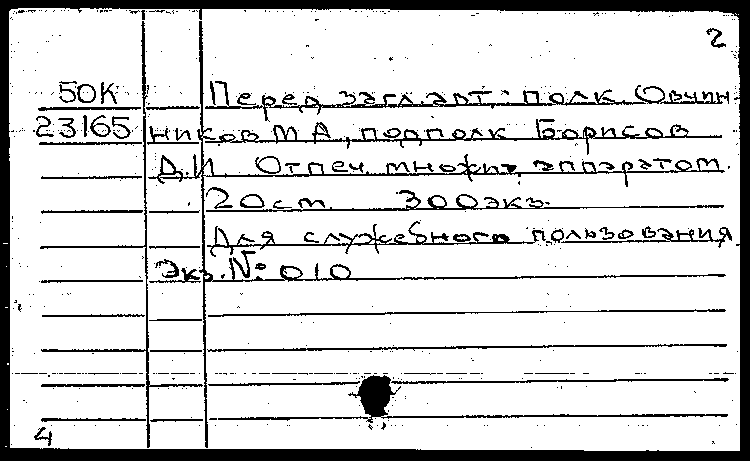 2
50К Перед загл. авт.: полк. Овчин-
23165 ников М А, подполк Борисов
Д.И. Отпеч. множит. аппаратом.
20см. 300экз.
Для служебного пользования
Экз. №: 010
4